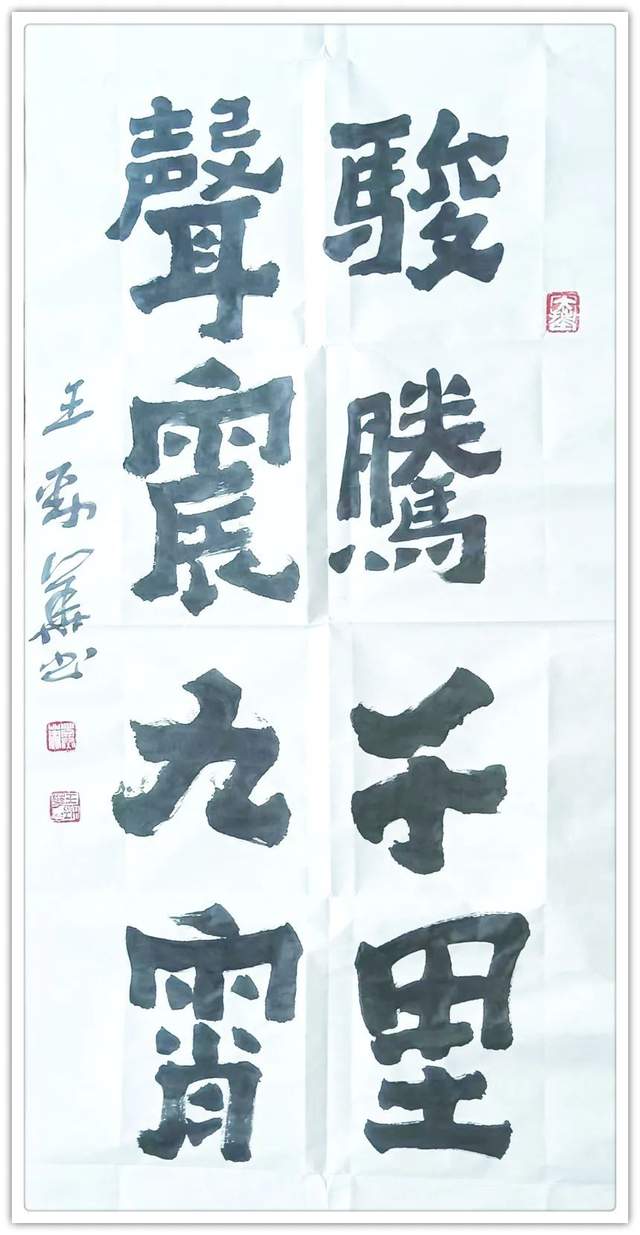 駿騰千里
聲震九霄
王
書